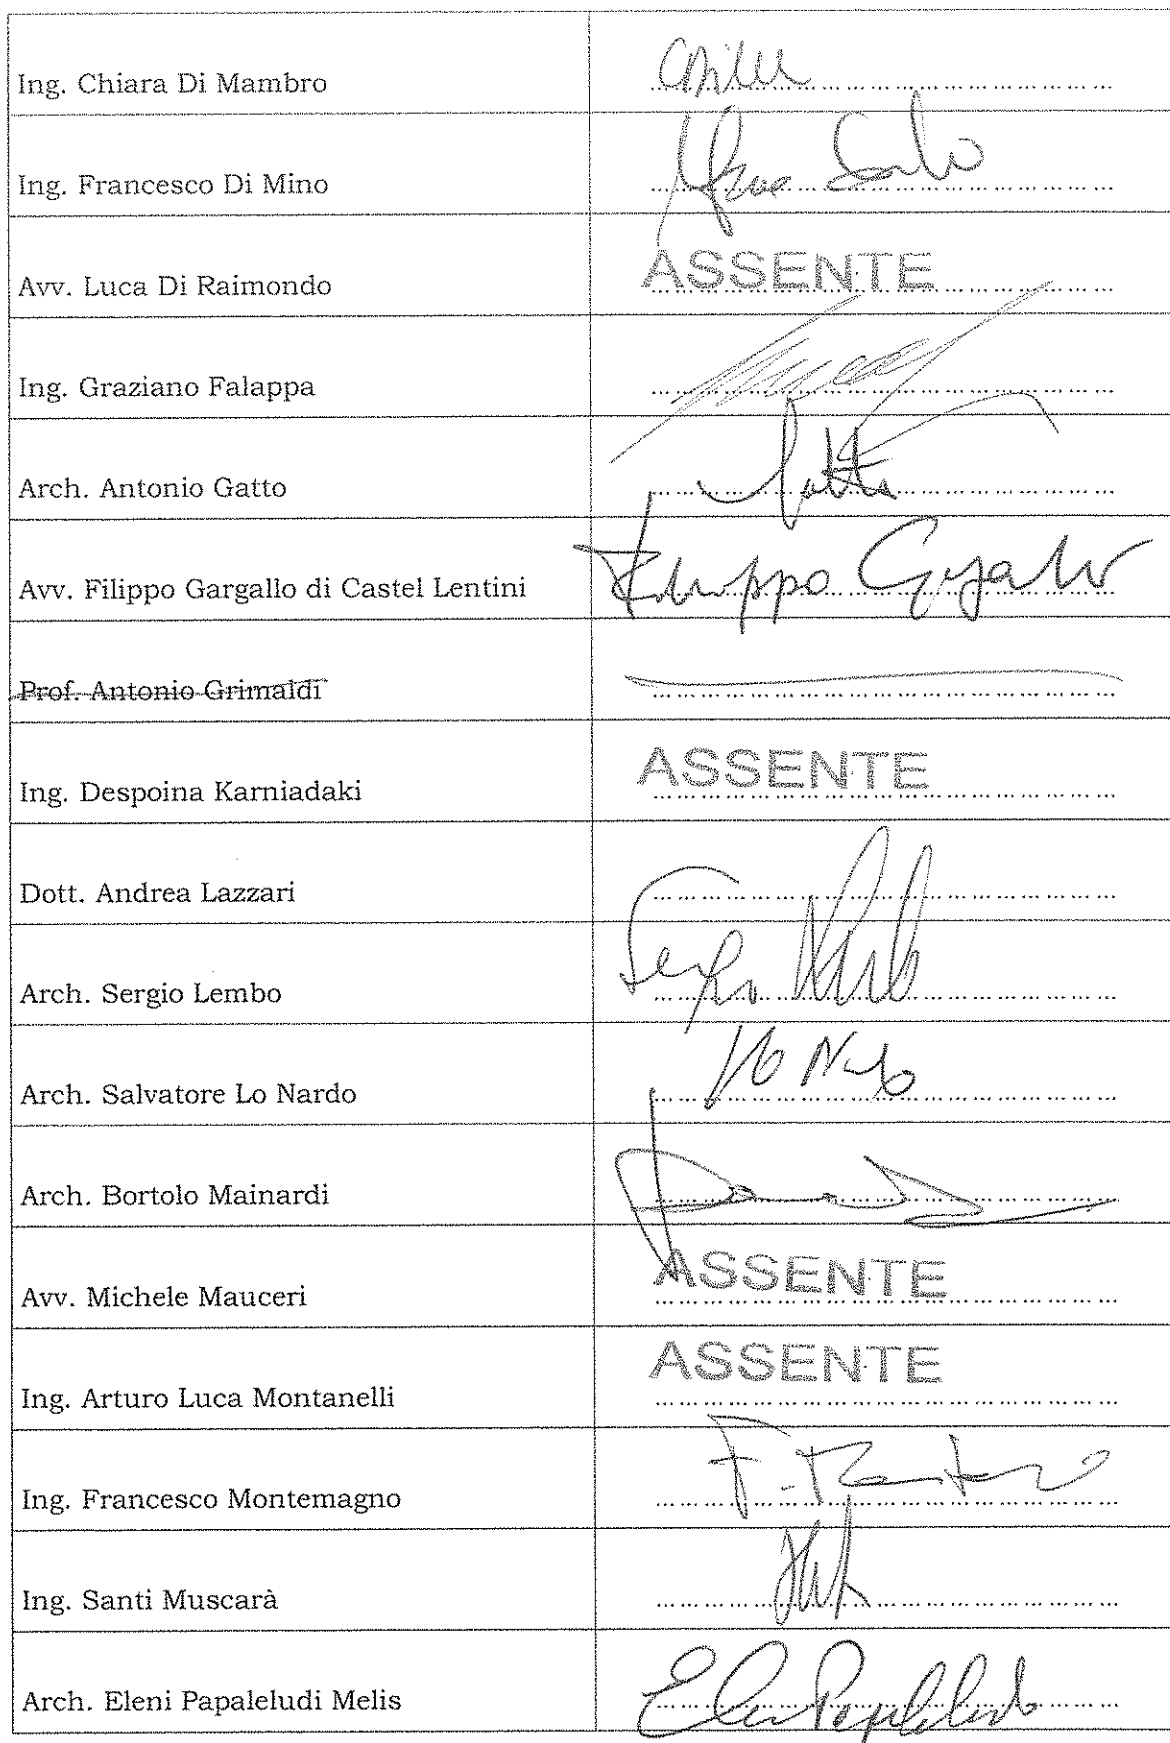 Ing. Chiara Di Mambro
Ing. Francesco Di Mino
Avv. Luca Di Raimondo ASSENTE
Ing. Graziano Falappa
Arch. Antonio Gatto Gatto
Avv. Filippo Gargallo di Castel Lentini Filippo Gargallo
Prof. Antonio Grimaldi
Ing. Despoina Karniadaki ASSENTE
Dott. Andrea Lazzari
Arch. Sergio Lembo Sergio Lembo
Arch. Salvatore Lo Nardo Lo Nardo
Arch. Bortolo Mainardi
Avv. Michele Mauceri ASSENTE
Ing. Arturo Luca Montanelli ASSENTE
Ing. Francesco Montemagno
Ing. Santi Muscarà
Arch. Eleni Papaleludi Melis